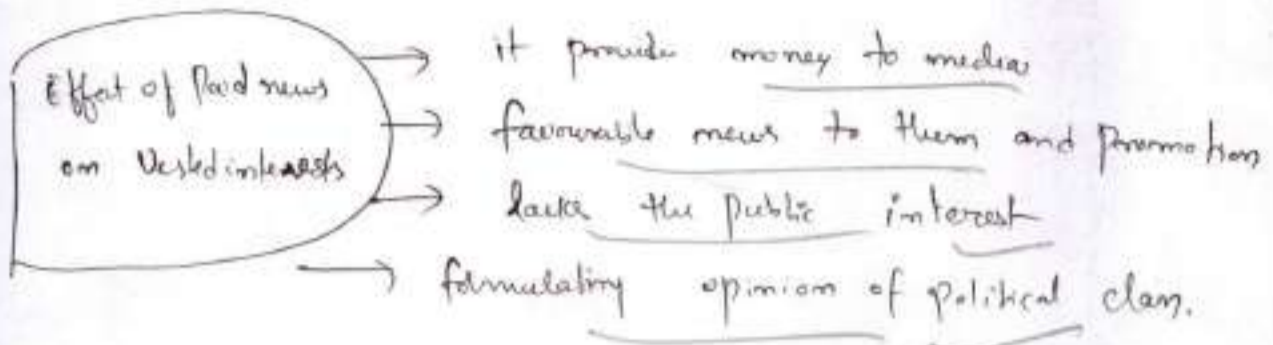 Effect of Paid news
on Vested interests
→ it provide money to media
→ favourable news to them and promotion
→ lacks the public interest
→ formulating opinion of political class.